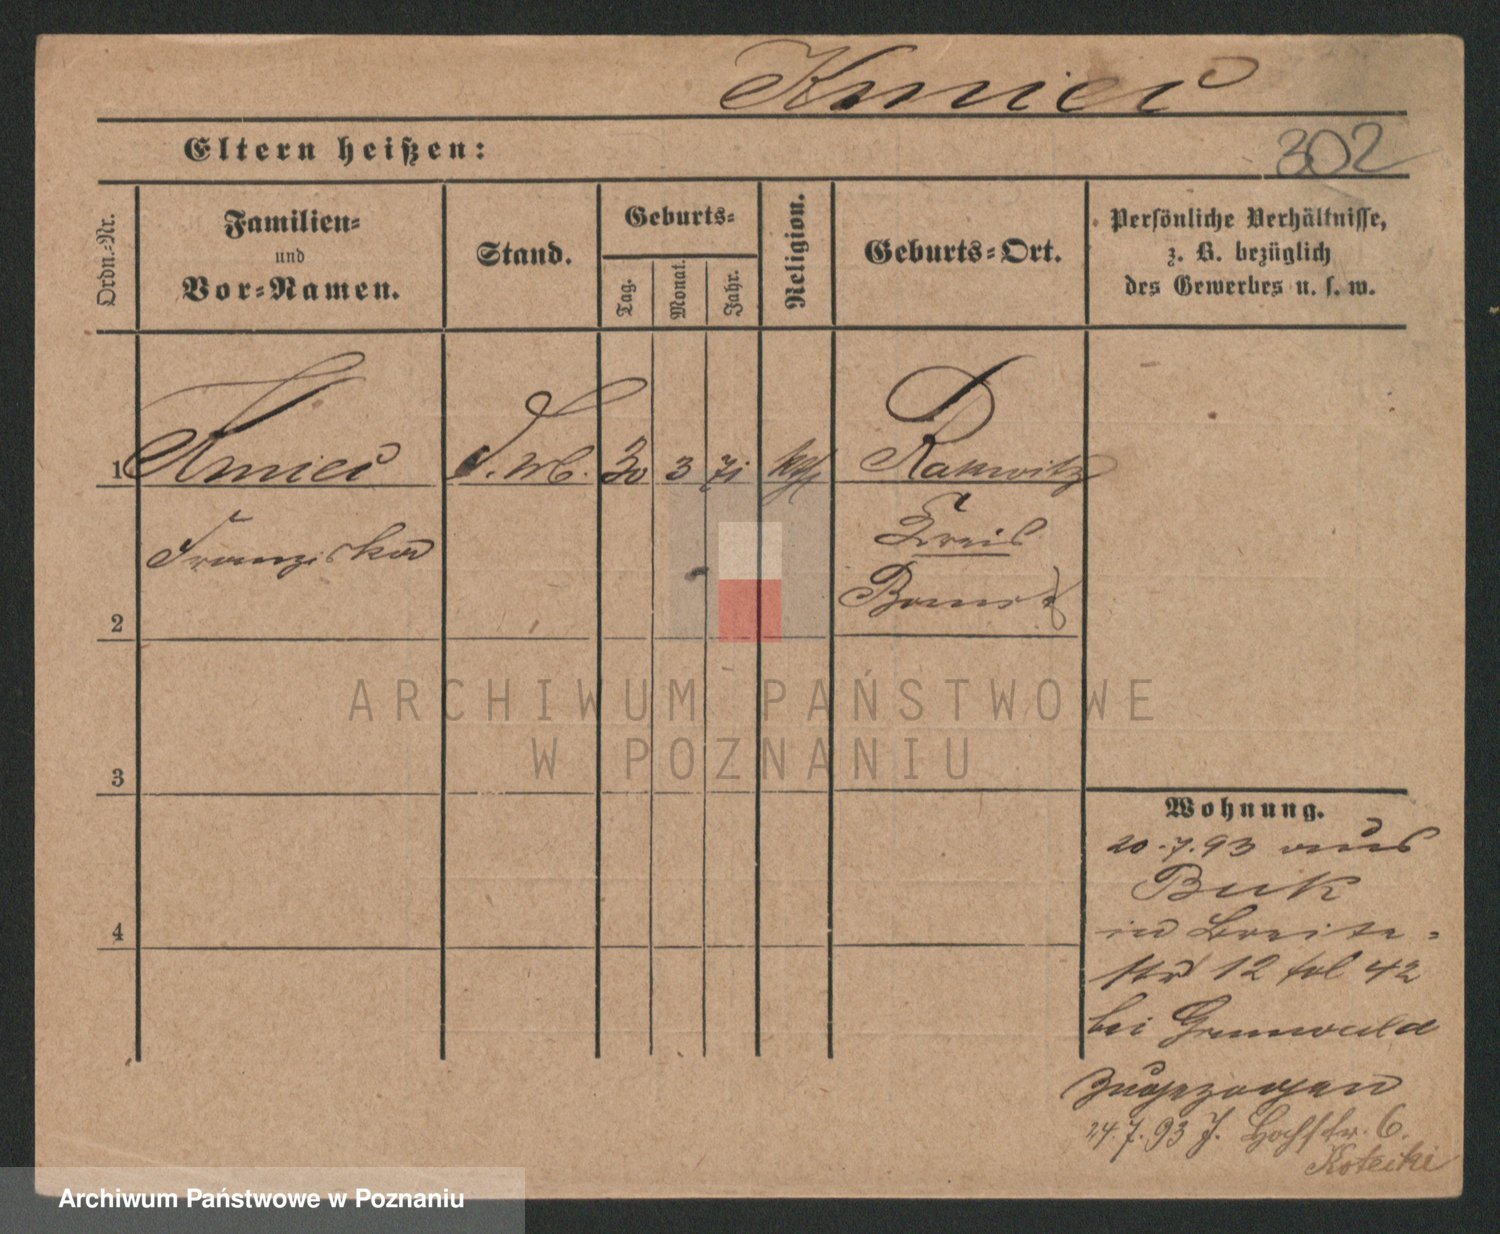 Kmieć
Eltern heißen:
302
Ordn.-Nr.
Familien-
und
Vor-Namen.
Stand.
Geburts-
Tag.
Monat.
Jahr.
Religion.
Geburts-Ort.
Persönliche Verhältnisse,
z. B. bezüglich
des Gewerbes u. s. w.
1
Kmieć
30
3
71
kth
Rakwitz
Franziska
Kreis
Bomst
2
ARCHIWUM PAŃSTWOWE
W POZNANIU
3
Wohnung.
20.7.93 aus
Buk
in Breite-
str 12 fol 42
bei Grunwald
zugezogen
24.7.93 J. Hochstr. 6.
Kotecki
4
Archiwum Państwowe w Poznaniu